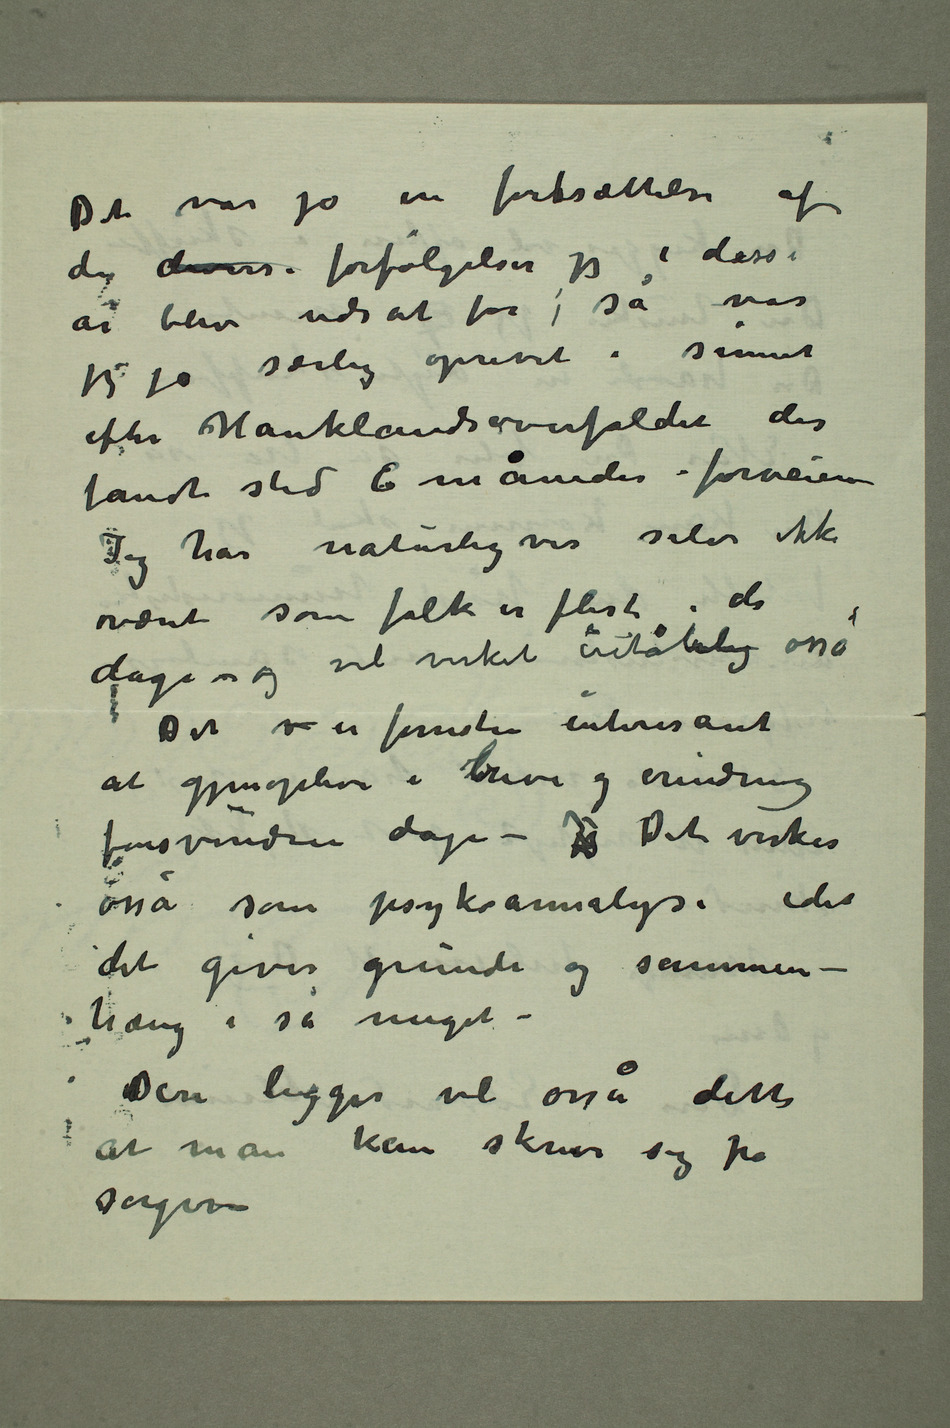 Det var jo en fortsættelse af
de diverse forfølgelser jeg i disse
år blev udsat for; så var
jeg jo særlig oprevet i sinnet
efter Hauklandsoverfaldet der
fandt sted 6 måneder i forveien
Jeg har naturligvis selv ikke
været som folk er flest i de
dage – og vel virket utålelig osså
Det er forresten interesant
at gjenopleve i breve og erindring
forsvundne dage – Det virker
osså som psykoannalyse idet
det giver grunde og sammen-
hæng i så meget –
Deri ligger vel osså dette
at man kan skrive sig fra
sorgen